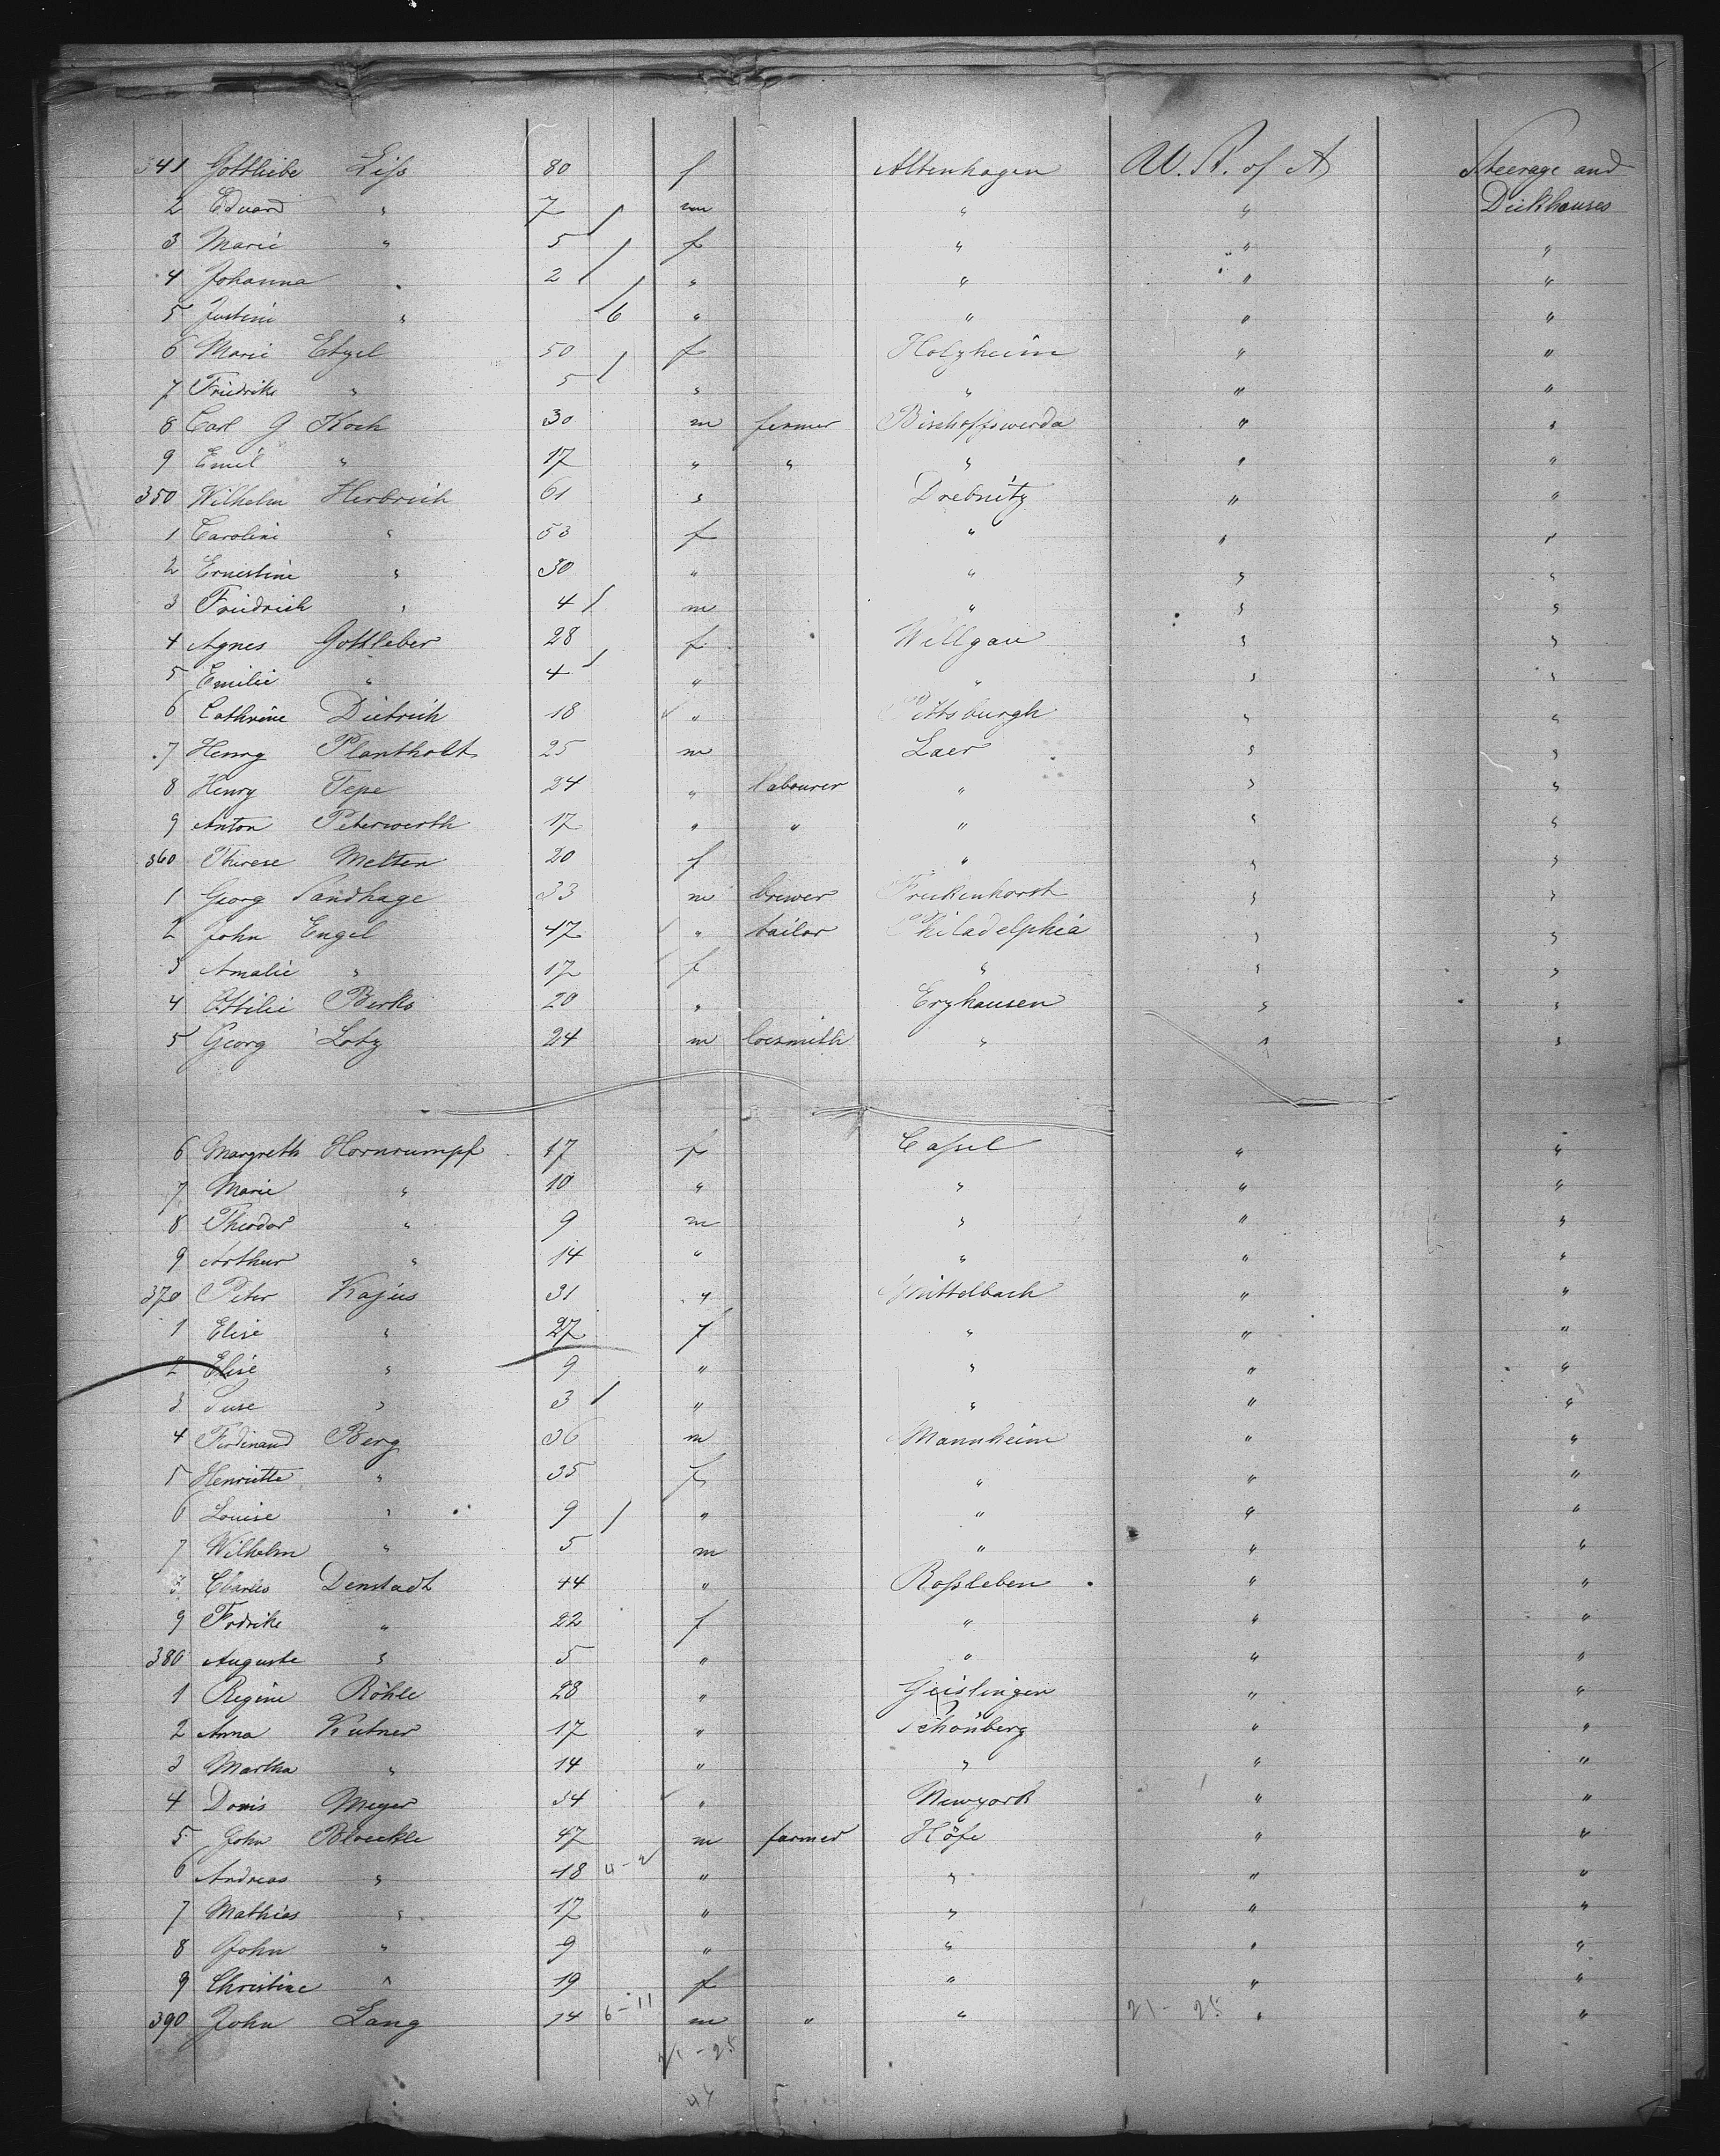 341 Gottliebe Liss 80 f Altenhagen U. S. of A Steerage and
2 Eduard " 7 / m " " Deckhouses
3 Marie " 5 / f " " "
4 Johanna " 2 / " " " "
5 Justine " /6 " " " "
6 Marie Etzel 50 f Holzheim " "
7 Friedrike " 5 / " " " "
8 Carl G Koch 30 m farmer Bischoffswerda " "
9 Emil " 17 " " " " "
350 Wilhelm Herbrich 61 " Drebnitz " "
1 Caroline " 53 f " " "
2 Ernestine " 30 " " " "
3 Friedrich " 4 / m " " "
4 Agnes Gottleber 28 f Willgau " "
5 Emilie " 4 / " " " "
6 Cathrine Dietrich 18 " Pittsburgh " "
7 Henry Plantholt 25 m Laer " "
8 Henry Tepe 24 " labourer " " "
9 Anton Peterwerth 17 " " " " "
360 Therese Melten 20 f " " "
1 Georg Sandhage 33 m brewer Freckenhorst " "
2 John Engel 47 " tailor Philadelphia " "
3 Amalie " 17 f " " "
4 Ottilie Berks 20 " Eryhausen " "
5 Georg Lotz 24 m locsmith " " "
6 Margreth Hornrumpf 47 f Cassel " "
7 Marie " 10 " " " "
8 Theodor " 9 m " " "
9 Arthur " 14 " " " "
370 Peter Kajus 31 " Mittelbach " "
1 Elise " 27 f " " "
2 Elise " 9 " " " "
3 Suse " 3 / " " " "
4 Ferdinand Berg 36 m Mannheim " "
5 Henriette " 35 f " " "
6 Louise " 9 / " " " "
7 Wilhelm " 5 m " " "
8 Charles Denstadt 44 " Rossleben " "
9 Fredrike " 22 f " " "
380 Auguste " 5 " " " "
1 Regine Röhle 28 " Geislingen " "
2 Anna Kutner 17 " Schönberg " "
3 Martha " 14 " " " "
4 Doris Meyer 34 " Newyork " "
5 John Bloeckle 47 m farmer Höfe " "
6 Andreas " 18 4-2 " " " "
7 Mathias " 17 " " " "
8 John " 9 " " " "
9 Christine " 19 f " " "
390 John Lang 14 6-11 m " " 21-25 " "
21-25